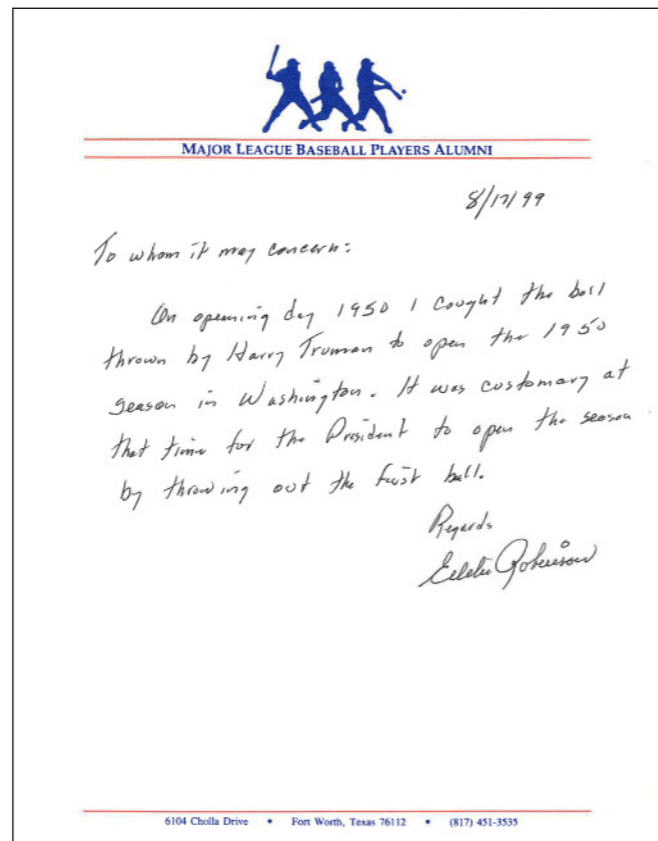 MAJOR LEAGUE BASEBALL PLAYERS ALUMNI
8/17/99
To whom it may concern:
On opening day 1950 I caught the ball
thrown by Harry Truman to open the 1950
season in Washington. It was customary at
that time for the President to open the season
by throwing out the first ball.
Regards
Eddie Robinson
6104 Cholla Drive • Fort Worth, Texas 76112 • (817) 451-3535